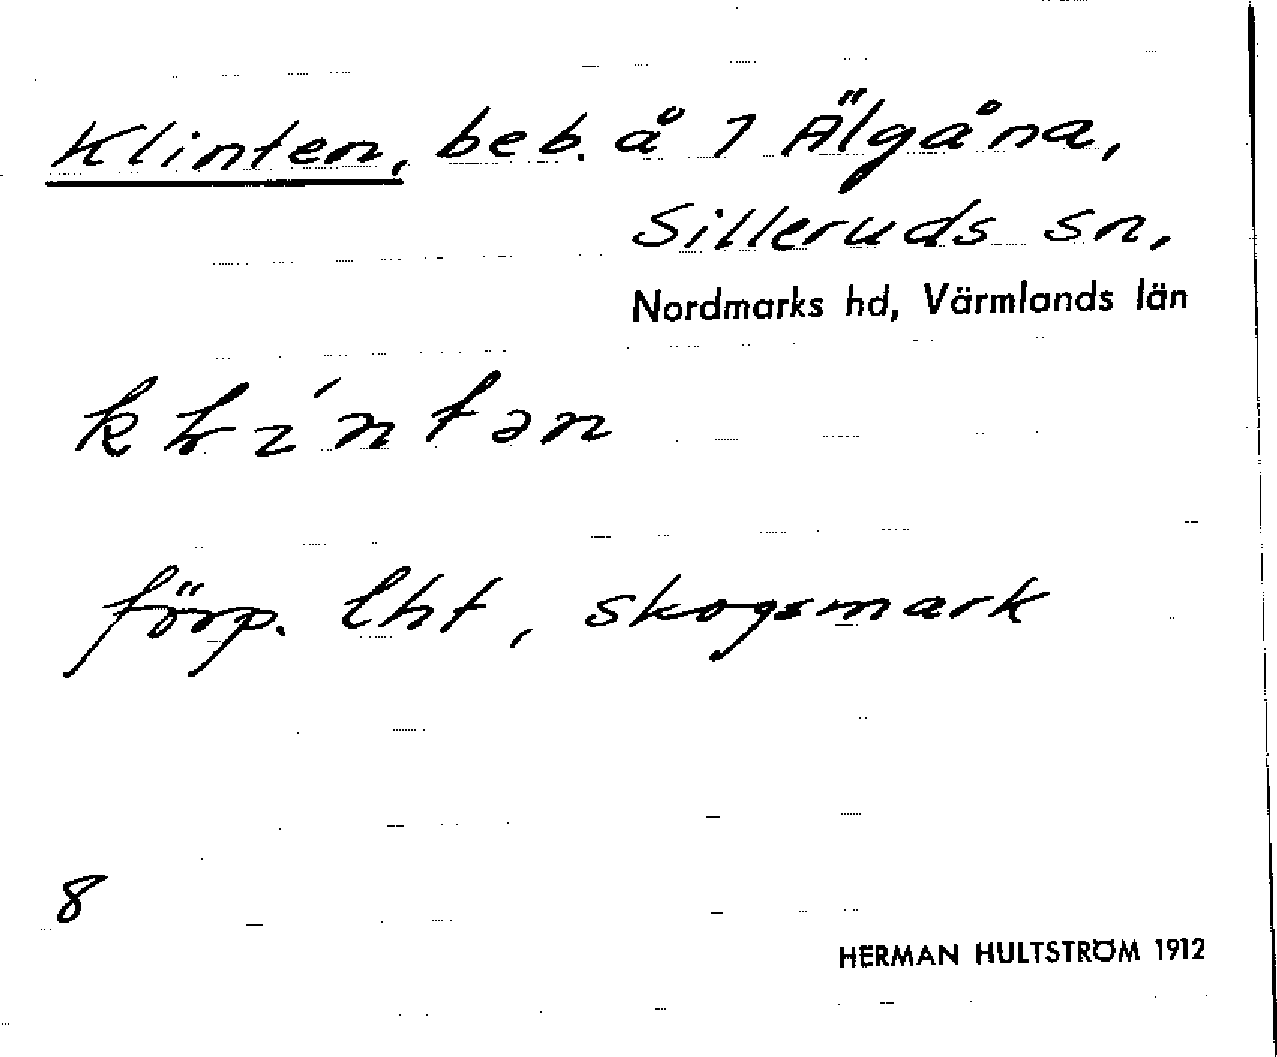 Klinten, beb. å 1 Älgåna,
Silleruds sn,
Nordmarks hd, Värmlands län
förp. lht, skogsmark
8
HERMAN HULTSTRÖM 1912